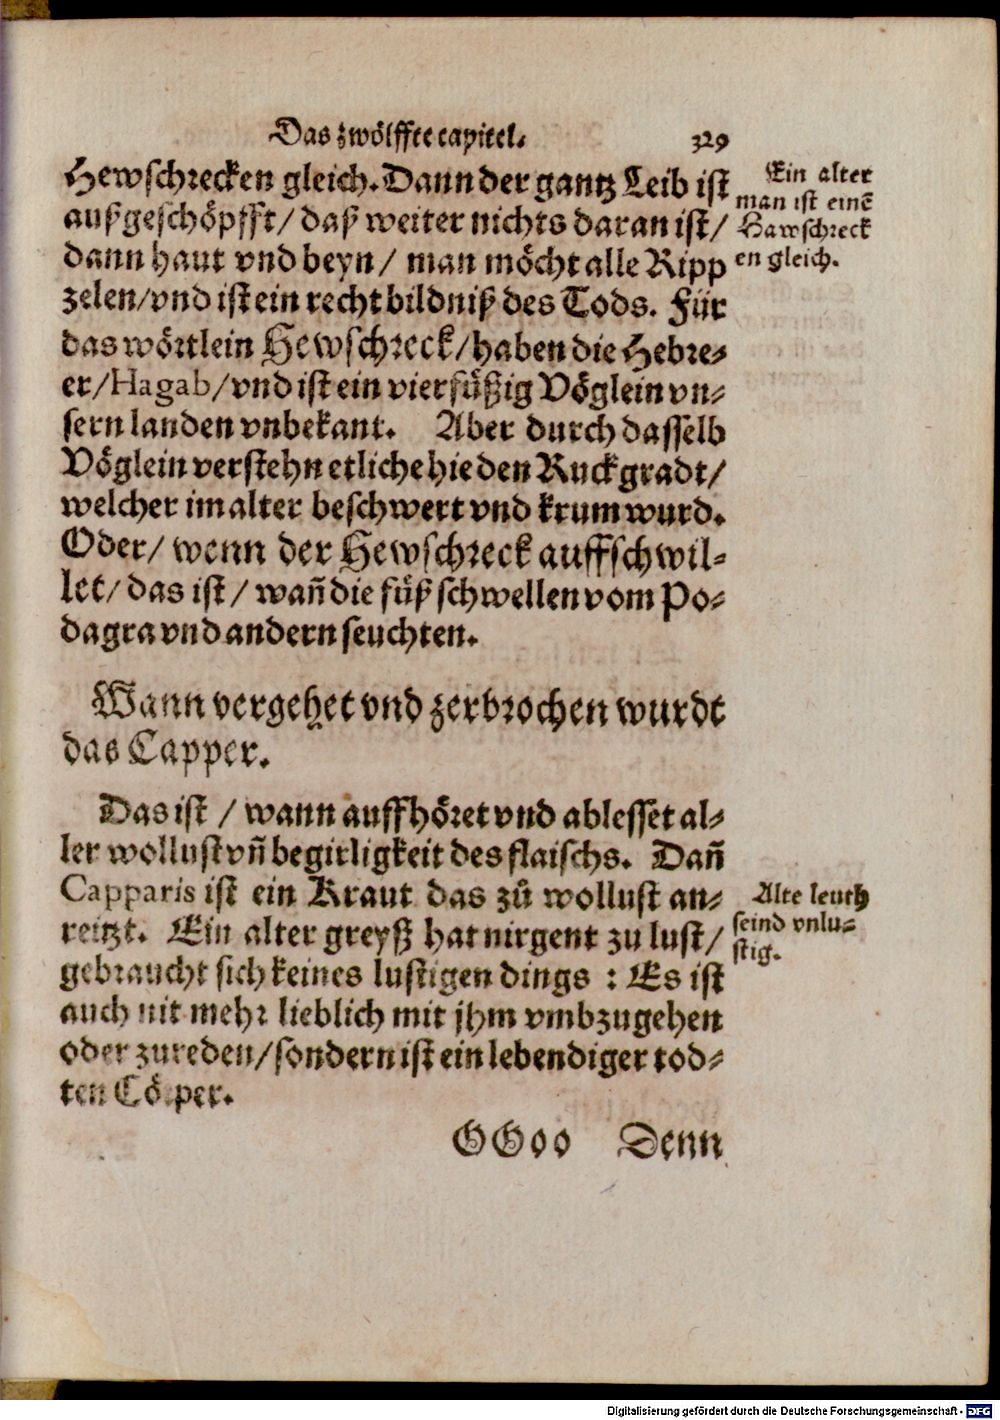 Das zwölffte capitel. 329
Hewschrecken gleich. Dann der gantz Leib ist
außgeschöpfft/ daß weiter nichts daran ist/
dann haut vnd beyn/ man möcht alle Ripp
zelen/vnd ist ein recht bildniß des Tods. Für
das wörtlein Hewschreck/haben die Hebre⸗
er/Hagab/vnd ist ein vierfüßig Vöglein vn⸗
sern landen vnbekant. Aber durch dasselb
Vöglein verstehn etliche hie den Ruckgradt/
welcher im alter beschwert vnd krum wurd.
Oder/ wenn der Hewschreck auffschwil⸗
let/ das ist/ wañ die füß schwellen vom Po⸗
dagra vnd andern seuchten.
Ein alter
man ist einẽ
Hawschreck
en gleich.
Wann vergehet vnd zerbrochen wurdt
das Capper.
Das ist / wann auffhöret vnd ablesset al⸗
ler wollust vñ begirligkeit des flaischs. Dañ
Capparis ist ein Kraut das zů wollust an⸗
reitzt. Ein alter greyß hat nirgent zu lust/
gebraucht sich keines lustigen dings : Es ist
auch nit mehr lieblich mit jhm vmbzugehen
oder zureden/sondern ist ein lebendiger tod⸗
ten Cö per.
Alte leuth
seind vnlu⸗
stig.
GGoo Denn
Digitalisierung gefördert durch die Deutsche Forschungsgemeinschaft - DFG